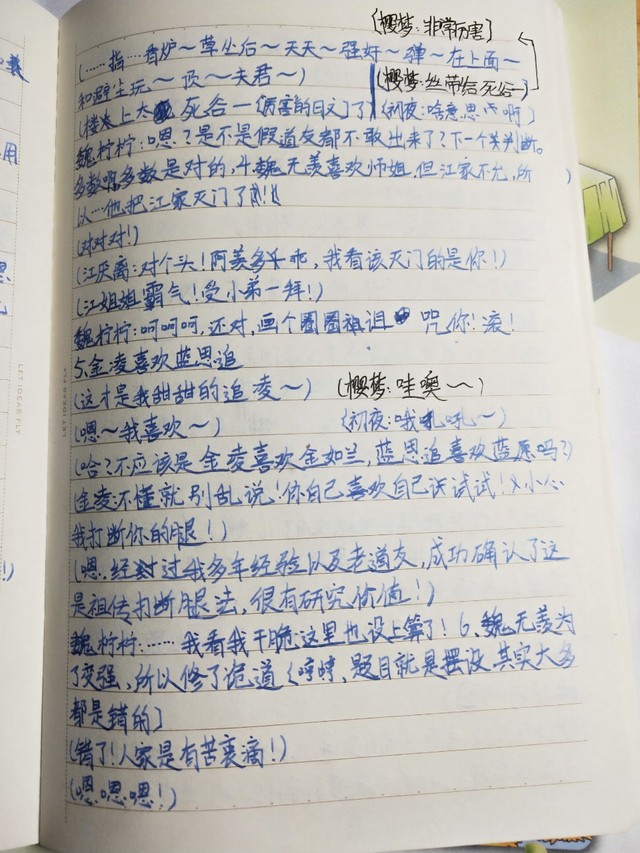 (樱梦:非常厉害)
(……指…香炉～草丛后～天天～强奸～弹～在上面～
和避尘玩～顶～夫君～)
(樱梦:丝带给死谷～)
(楼上太 死谷一 厉害的日 了了)
(初夜:啥意思 啊)
魏柠柠:嗯?是不是假道友都不敢出来了?下一个关判断。
多数啊多数是对的,4.魏无羡喜欢师姐,但江家不允,所
以…他把江家灭门了!!!
(对对对!)
(江厌离:对个头!阿羡多乖,我看该灭门的是你!)
(江姐姐霸气!受小弟一拜!)
魏柠柠:呵呵呵,还对,画个圈圈祖诅 咒你!滚!
5、金凌喜欢蓝思追
(这才是我甜甜的追凌～)
(樱梦:哇噢～～)
(嗯～我喜欢～)
(初夜:哦吼吼～)
(哈?不应该是金凌喜欢金如兰,蓝思追喜欢蓝愿吗?)
(金凌:不懂就别乱说!你自己喜欢自己试试试!小心
我打断你的腿!)
(嗯.经过我多年经验以及老道友,成功确认了这
是祖传打断腿法,很有研究价值!)
魏柠柠:……我看我干脆这里也设上算了!6、魏无羡为
了变强,所以修了诡道(哼哼,题目就是摆设,其实大多
都是错的]
(错了!人家是有苦衷滴!)
(嗯.嗯.嗯!)
LET IDEAS FLY
LET IDEAS FLY